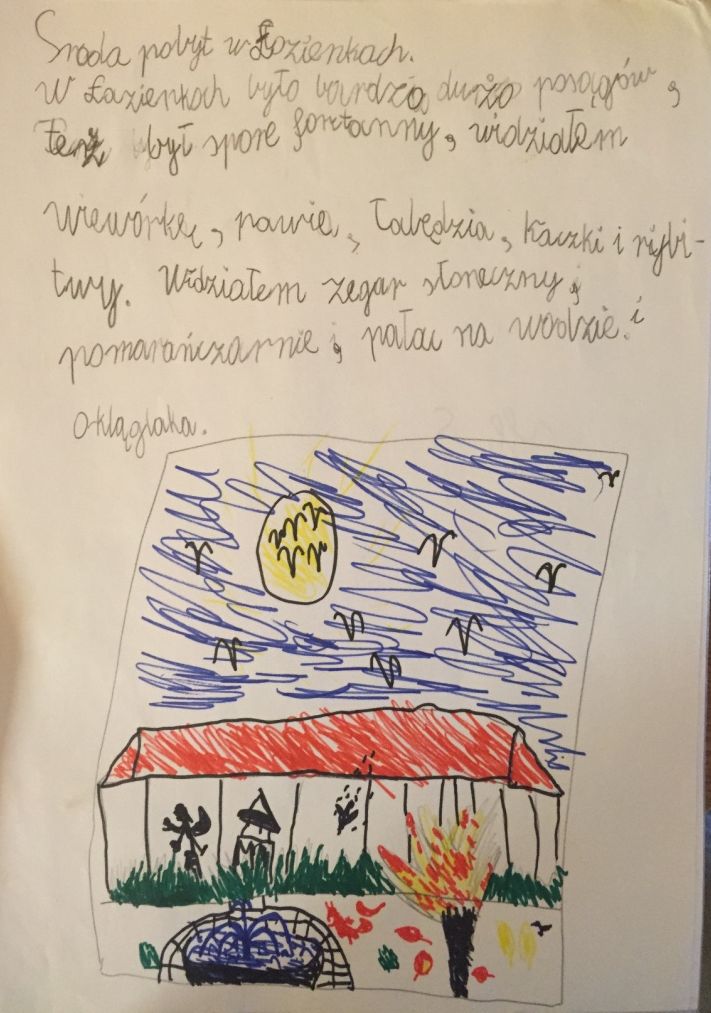 Sroda pobyt w Łozienkach.
W Łazienkach było bardzo dużo posągów,
Też był spore fontanny, widziałem
wiewórkę, pawie, Łabędzia, kaczki i rybi-
twy. Widziałem zegar słoneczny,
pomarańczarnie, pałac na wodzie. i
Okląglaka.